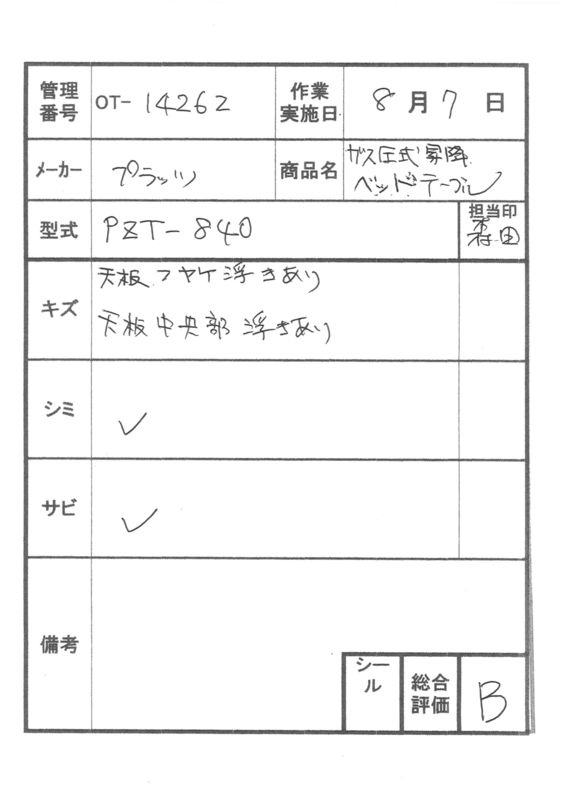 管理番号 OT-14262 作業実施日 8月7日
メーカー プラッツ 商品名 ガス圧式昇降
ベッドテーブル
型式 PZT-840 担当印
森田
キズ 天板 フヤケ浮きあり
天板中央部 浮きあり
シミ ✓
サビ ✓
備考
シール 総合評価 B